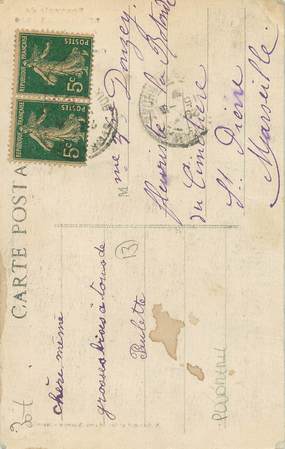 CARTE POSTALE
chère mémé
grosses bises à tous de
Paulette
13
Mme Vve
fleuriste La Rotonde
du Cimetière
St Pierre
Marseille
RÉPUBLIQUE FRANÇAISE
POSTES
5c
RÉPUBLIQUE FRANÇAISE
POSTES
5c